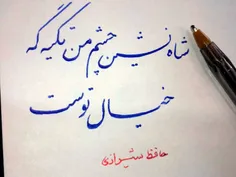 شاه نشین چشم من تکیه گه
خیال توست
حافظ شیرازی